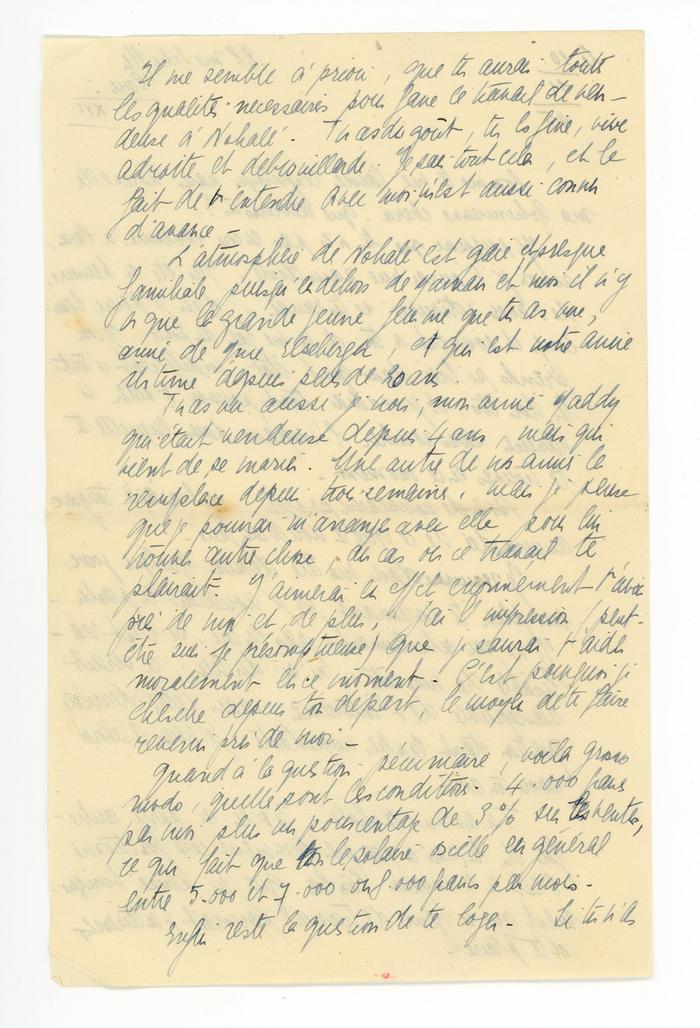 Il me semble à priori, que tu aurais toutes
les qualités necessaires pour faire le travail de ven-
deuse à Nohalé. Tu as du goût, tu es fine, vive
adroite et debrouillarde. Je sais tout cela, et le
fait de t'entendre avec moi, m'est aussi connu
d'avance -
L'atmosphère de Nohalé est gaie et presque
familiale puisqu'en dehors de Maman et moi il n'y
a que la grande jeune femme que tu as vue,
amie de Mme Elseberger, et qui est notre amie
intime depuis plus de 20 ans.
Tu as vu aussi je crois, mon amie Maddy
qui était vendeuse depuis 4 ans, mais qui
vient de se marier. Une autre de nos amies la
remplace depuis trois semaines, mais je pense
que je pourrai m'arranger avec elle pour lui
trouver autre chose, au cas où ce travail te
plairait. J'aimerai en effet enormement t'avoir
près de moi et, de plus, j'ai l'impression (peut-
être suis-je présomptueuse) que je saurai t'aider
moralement en ce moment. C'est pourquoi je
cherche depuis ton depart, le moyen de te faire
revenir près de moi -
Quand à la question pécuniaire, voilà grosso
modo, quelles sont les conditions. 4.000 francs
par mois plus un pourcentage de 3% sur les ventes,
ce qui fait que le salaire oscille en général
entre 5.000 et 7.000 ou 8.000 francs par mois -
Enfin reste la question de te loger - Si tu n'as